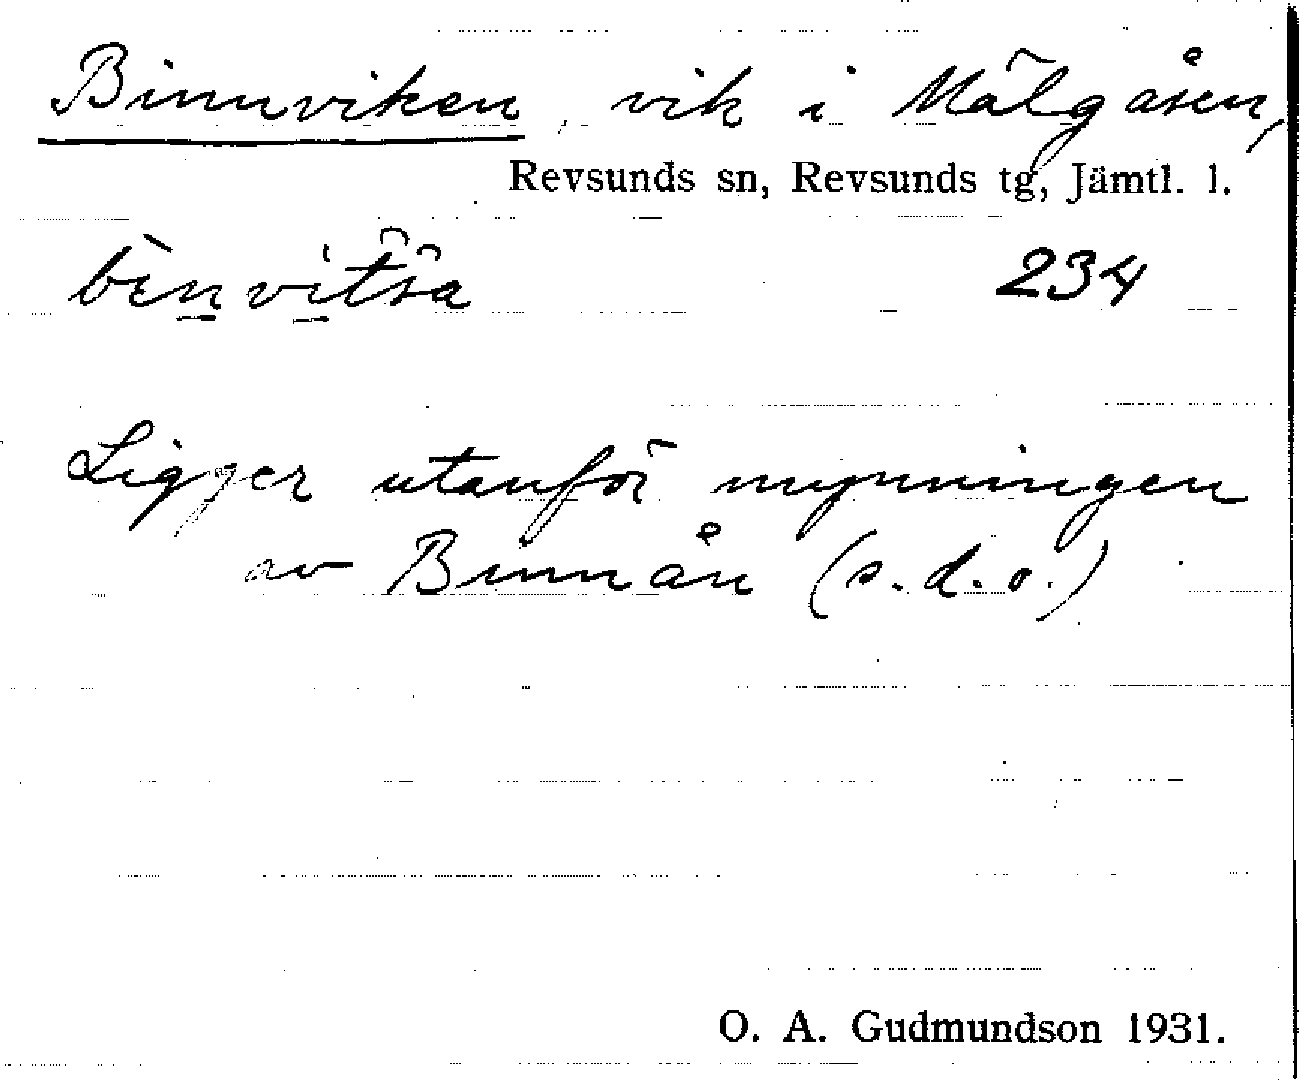 Binnviken, vik i Mälgåsen,
Revsunds sn, Revsunds tg, Jämtl. l.
234
Ligger utanför mynningen
av Binnån (s.d.o.)
O. A. Gudmundson 1931.